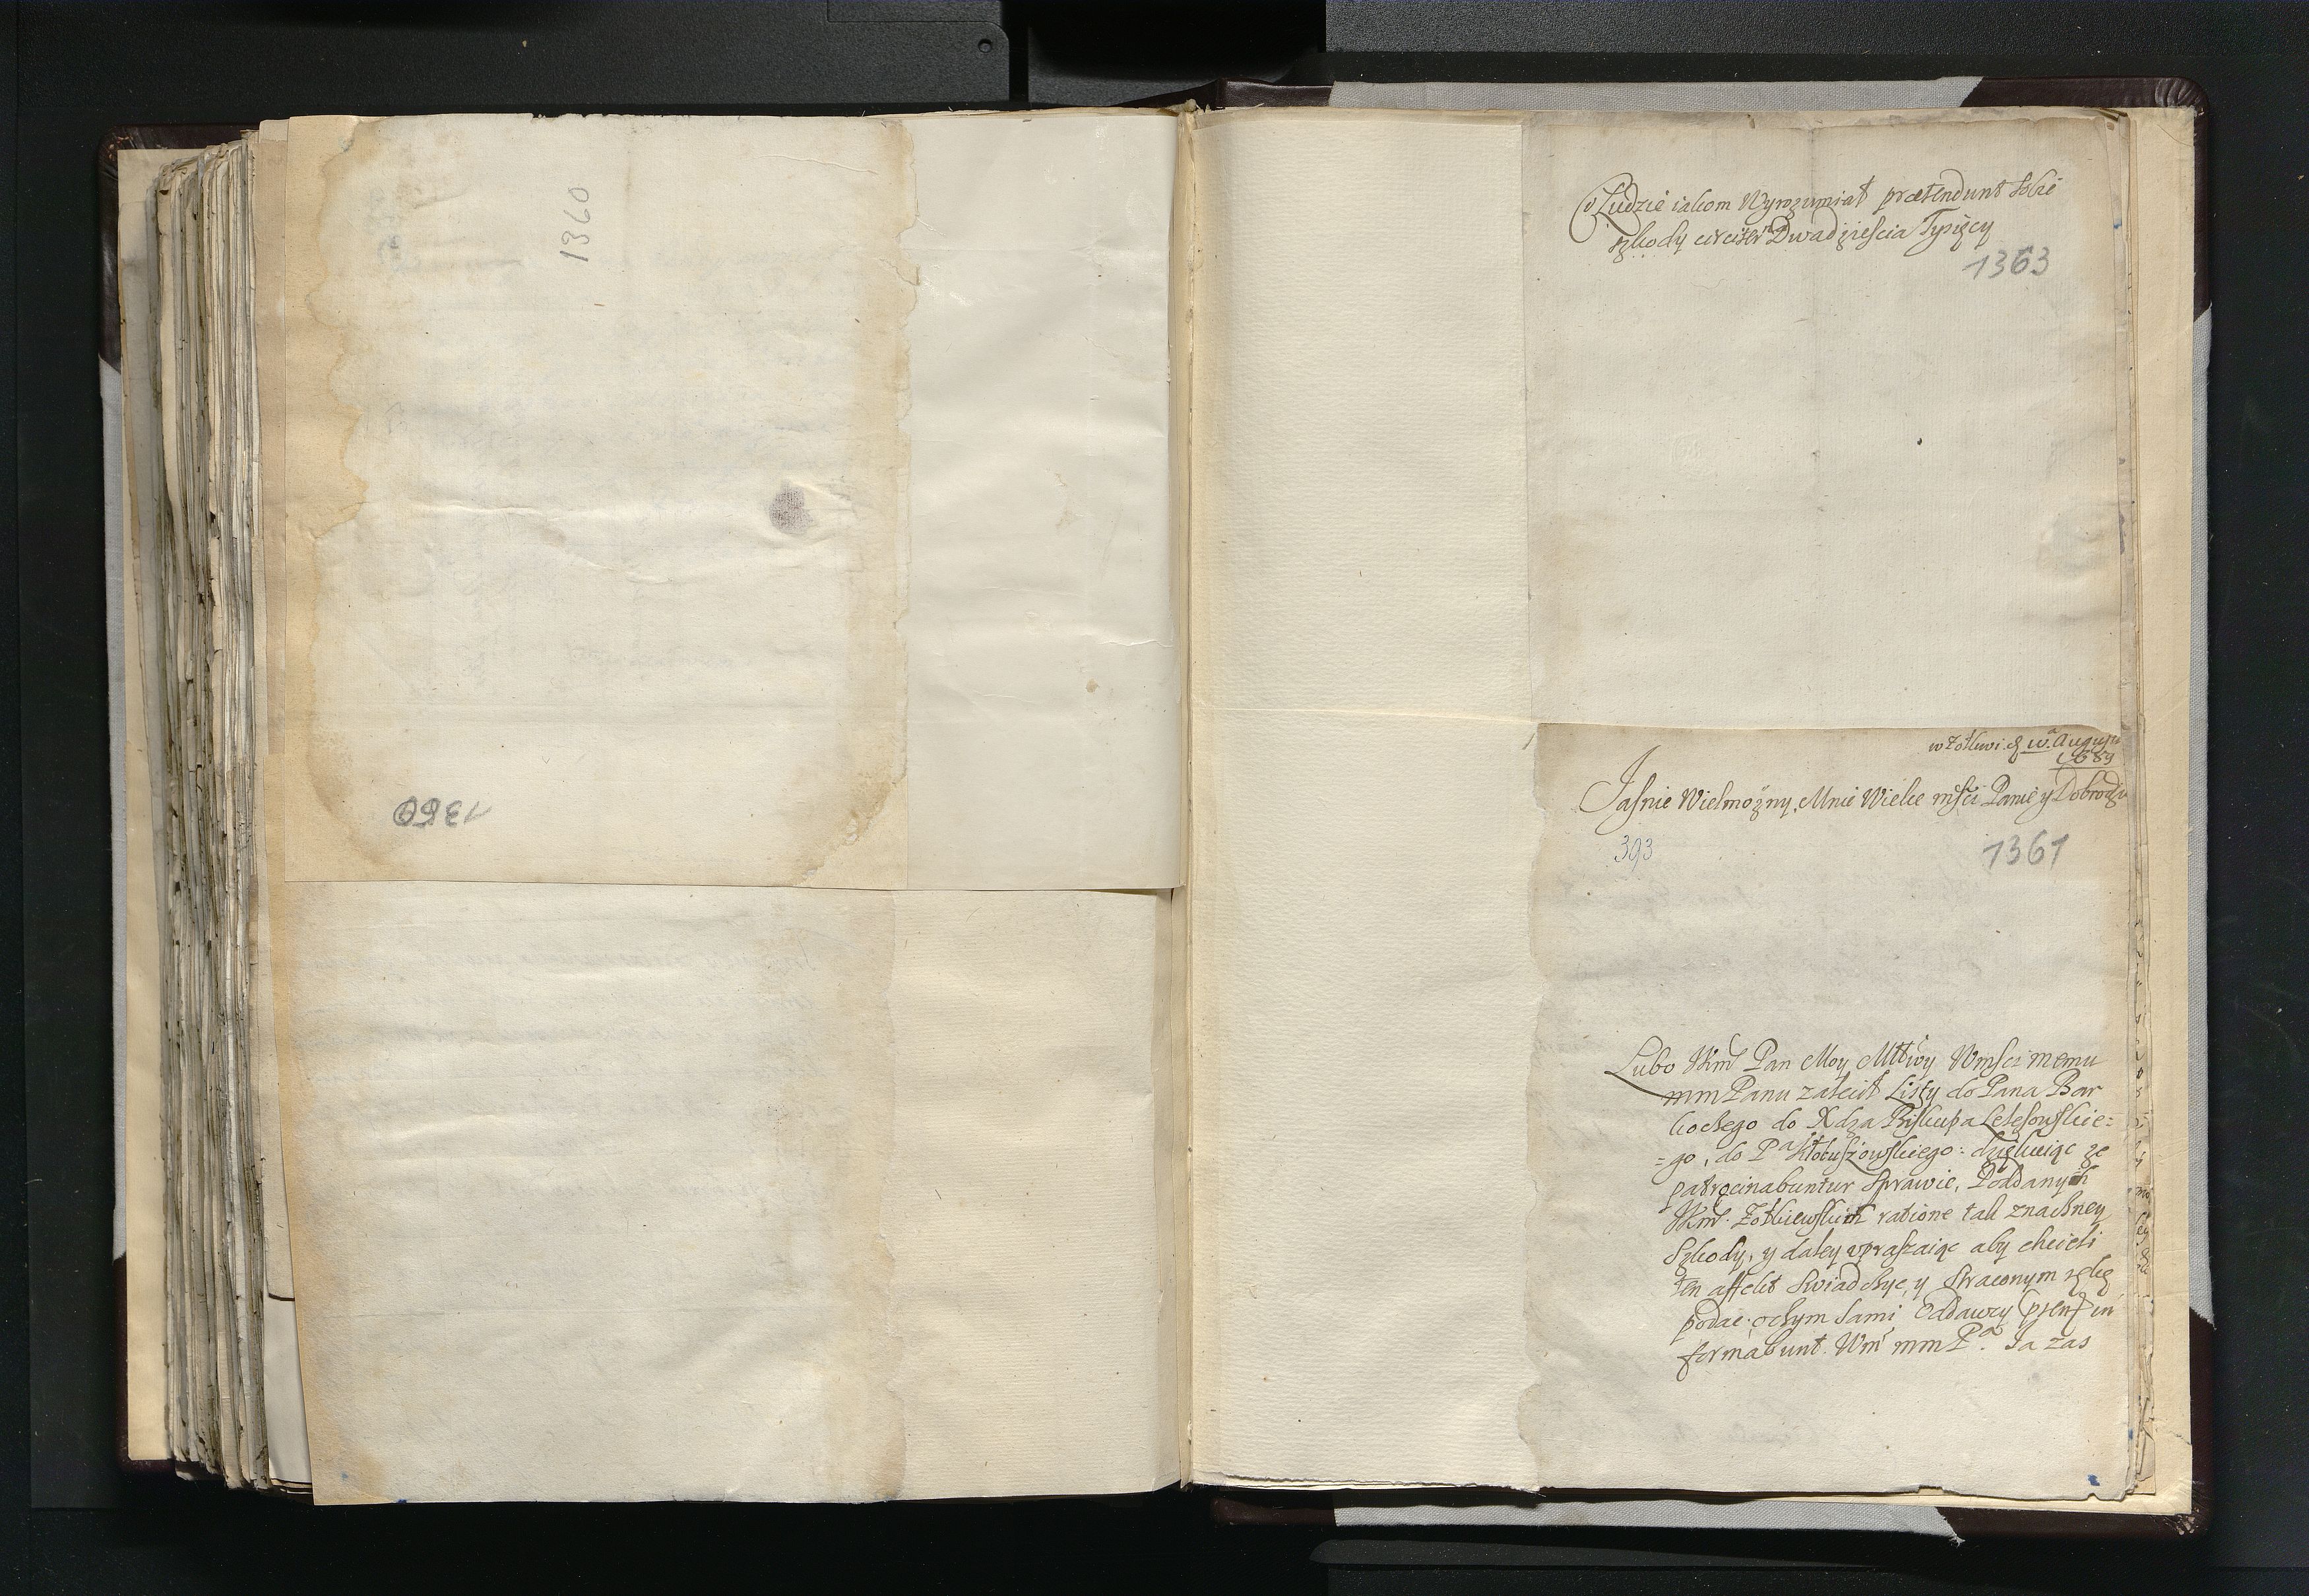 1360
1360
Ci Ludzie iakom Wyrozumiał prætendunt sobie
szkody circiter Dwadziescia Tysięcy
1363
w Żółkwi 8 Augusti
1689
Jasnie Wielmożny, Mnie Wielce mści Panie y Dobrodzi
393
1361
Lubo JKmć Pan Moy Młtiwy Wmści memu
mm Panu zalecił Listy do Pana Bar
kockego do Xdza Biskupa
=go, do Pa Kłobuszowskiego: dziękuiąc ze
patrocinabuntur Sprawie, Poddanych
JKmć Żołkiewskich ratione tak znaczney
Szkody, y daley upraszaiąc aby chcieli
ten affekt swiadczyc, y straconym rękę
podac. oczym sami Oddawcy in
formabunt. Wmć mm Pa. Ja zas